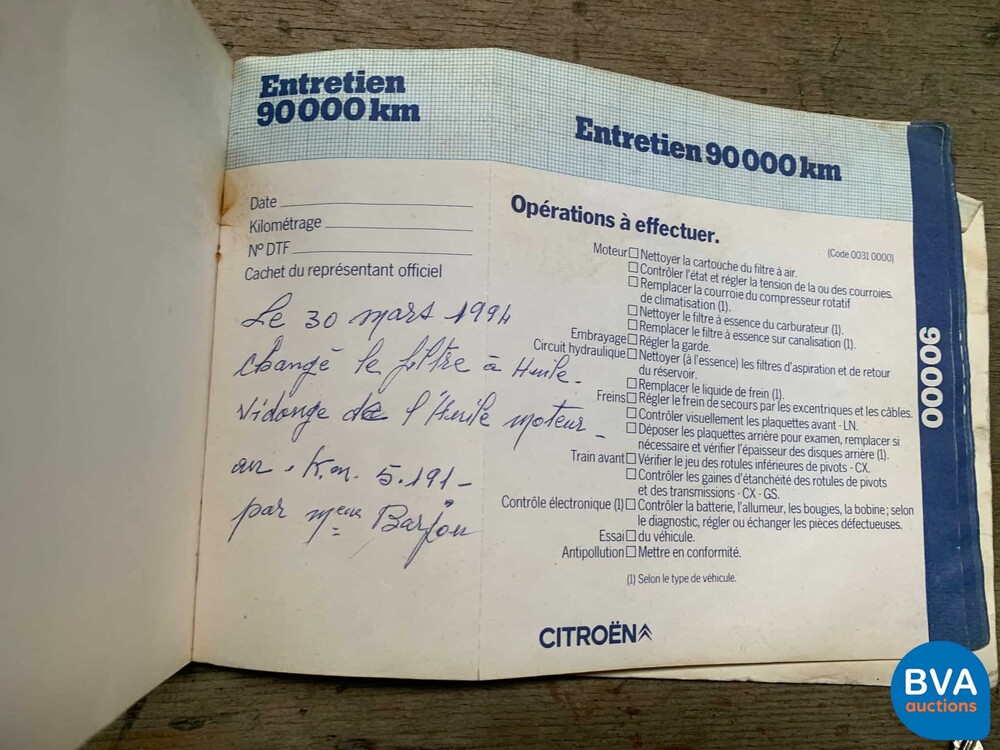 Entretien
90000 km
Date
Kilométrage
N° DTF
Cachet du représentant officiel
Le 30 mars 1994
changé le filtre à Huile.
Vidange de l'Huile moteur -
au . Km. 5.191 -
par
Entretien 90000 km
Opérations à effectuer.
(Code 0031 0000)
Moteur Nettoyer la cartouche du filtre à air.
Contrôler l'état et régler la tension de la ou des courroies.
Remplacer la courroie du compresseur rotatif
de climatisation (1).
Nettoyer le filtre à essence du carburateur (1).
Remplacer le filtre à essence sur canalisation (1).
Embrayage Régler la garde.
Circuit hydraulique Nettoyer (à l'essence) les filtres d'aspiration et de retour
du réservoir.
Remplacer le liquide de frein (1).
Freins Régler le frein de secours par les excentriques et les câbles.
Contrôler visuellement les plaquettes avant - LN.
Déposer les plaquettes arrière pour examen, remplacer si
nécessaire et vérifier l'épaisseur des disques arrière (1).
Train avant Vérifier le jeu des rotules inférieures de pivots - CX.
Contrôler les gaines d'étanchéité des rotules de pivots
et des transmissions - CX - GS.
Contrôle électronique (1) Contrôler la batterie, l'allumeur, les bougies, la bobine; selon
le diagnostic, régler ou échanger les pièces défectueuses.
Essai du véhicule.
Antipollution Mettre en conformité.
(1) Selon le type de véhicule.
CITROËN
90000
BVA
auctions